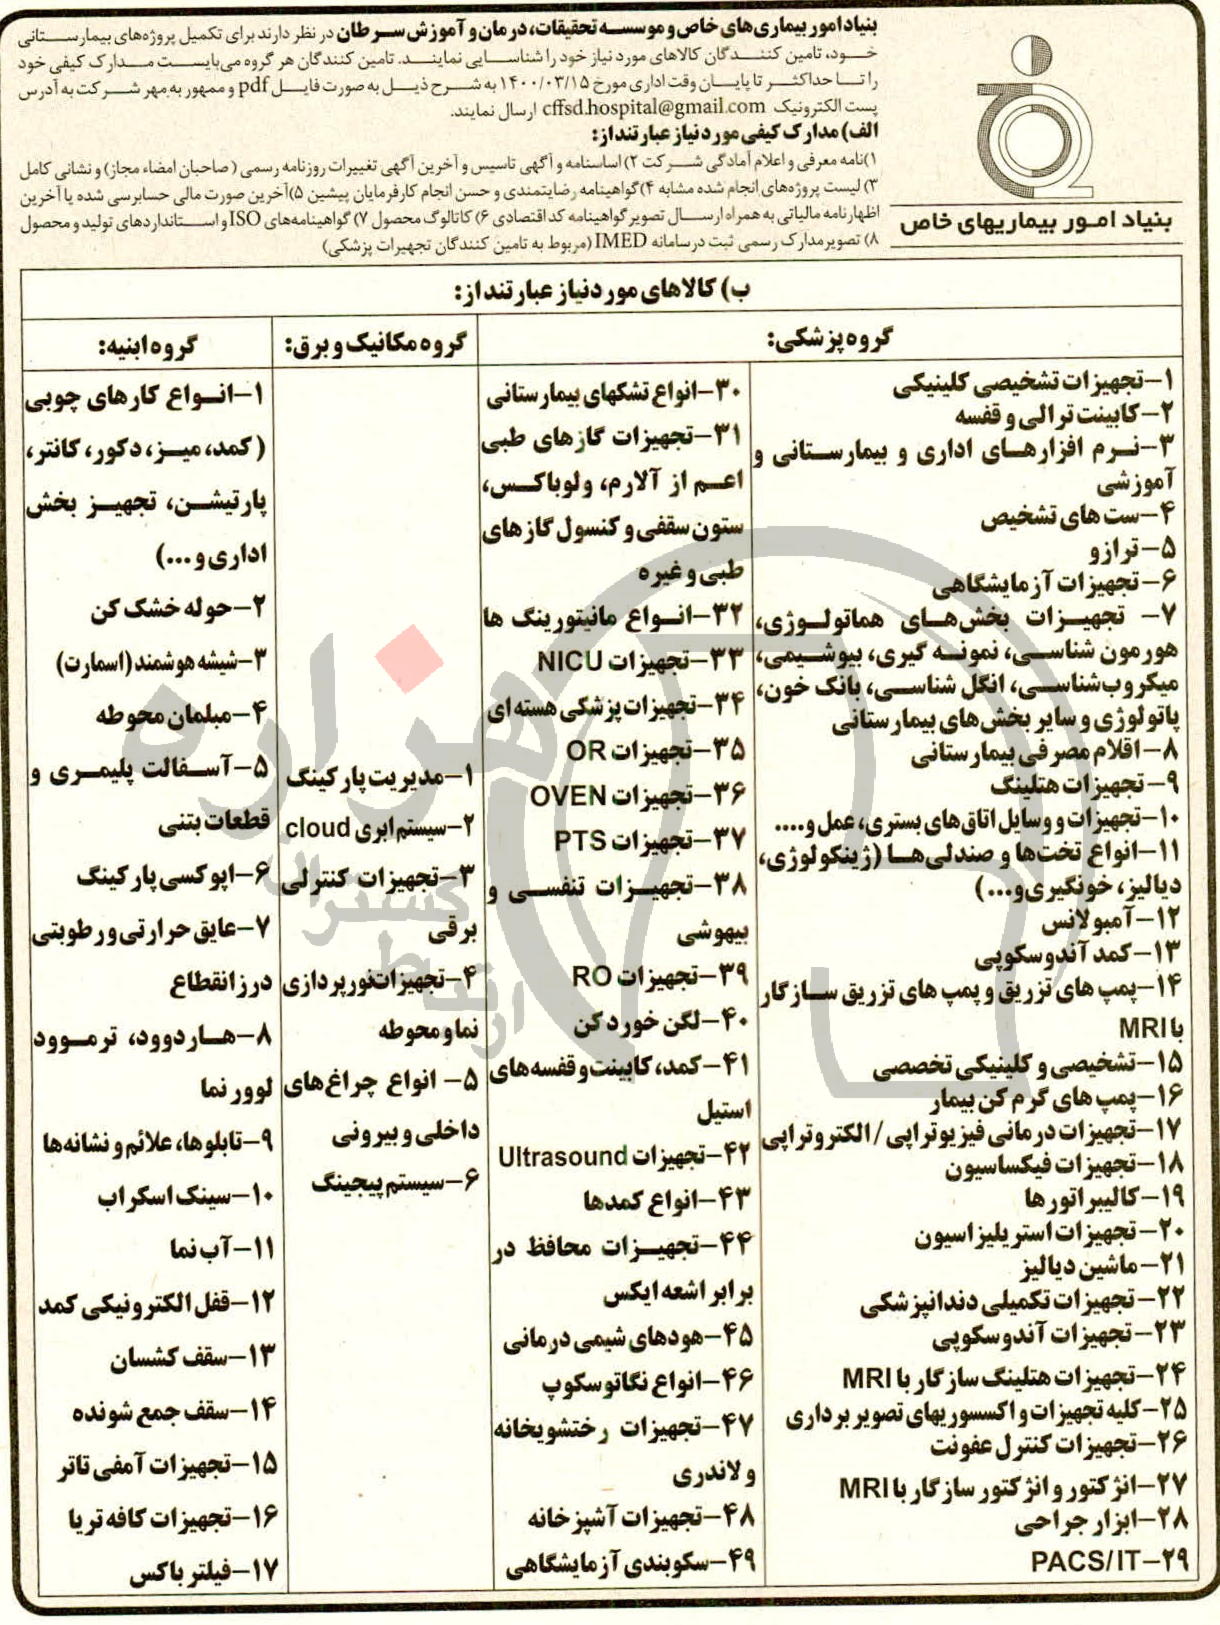 بنیاد امور بیماری‌های خاص و موسسه تحقیقات، درمان و آموزش سرطان در نظر دارند برای تکمیل پروژه‌های بیمارستانی
خود، تامین کنندگان کالاهای مورد نیاز خود را شناسایی نمایند. تامین کنندگان هر گروه می‌بایست مدارک کیفی خود
را تا حداکثر تا پایان وقت اداری مورخ ۱۴۰۰/۰۳/۱۵ به شرح ذیل به صورت فایل pdf و ممهور به مهر شرکت به آدرس
پست الکترونیک cffsd.hospital@gmail.com ارسال نمایند.
الف) مدارک کیفی مورد نیاز عبارتند از:
۱)نامه معرفی و اعلام آمادگی شرکت ۲) اساسنامه و آگهی تاسیس و آخرین آگهی تغییرات روزنامه رسمی (صاحبان امضاء مجاز) و نشانی کامل
۳) لیست پروژه‌های انجام شده مشابه ۴)گواهینامه رضایتمندی و حسن انجام کارفرمایان پیشین ۵)آخرین صورت مالی حسابرسی شده یا آخرین
اظهارنامه مالیاتی به همراه ارسال تصویر گواهینامه کد اقتصادی ۶) کاتالوگ محصول ۷) گواهینامه‌های ISO و استانداردهای تولید و محصول
۸) تصویر مدارک رسمی ثبت در سامانه IMED (مربوط به تامین کنندگان تجهیزات پزشکی)
بنیاد امور بیماریهای خاص
ب) کالاهای مورد نیاز عبارتند از:
گروه پزشکی:
۱-تجهیزات تشخیصی کلینیکی
۲-کابینت ترالی و قفسه
۳-نرم افزارهای اداری و بیمارستانی و
آموزشی
۴-ست های تشخیص
۵-ترازو
۶-تجهیزات آزمایشگاهی
۷- تجهیزات بخش‌های هماتولوژی،
هورمون شناسی، نمونه گیری، بیوشیمی،
میکروب‌شناسی، انگل شناسی، بانک خون،
پاتولوژی و سایر بخش‌های بیمارستانی
۸-اقلام مصرفی بیمارستانی
۹-تجهیزات هتلینگ
۱۰-تجهیزات و وسایل اتاق‌های بستری، عمل و....
۱۱-انواع تخت‌ها و صندلی‌ها (ژینکولوژی،
دیالیز، خونگیری و...)
۱۲-آمبولانس
۱۳-کمد آندوسکوپی
۱۴-پمپ های تزریق و پمپ های تزریق سازگار
با MRI
۱۵-تشخیصی و کلینیکی تخصصی
۱۶-پمپ های گرم کن بیمار
۱۷-تجهیزات درمانی فیزیوتراپی / الکتروتراپی
۱۸-تجهیزات فیکساسیون
۱۹-کالیبراتورها
۲۰-تجهیزات استریلیزاسیون
۲۱-ماشین دیالیز
۲۲-تجهیزات تکمیلی دندانپزشکی
۲۳-تجهیزات آندوسکوپی
۲۴-تجهیزات هتلینگ سازگار با MRI
۲۵-کلیه تجهیزات و اکسسوریهای تصویر برداری
۲۶-تجهیزات کنترل عفونت
۲۷-انژکتور و انژکتور سازگار با MRI
۲۸-ابزار جراحی
۲۹-PACS/IT
۳۰-انواع تشکهای بیمارستانی
۳۱-تجهیزات گازهای طبی
اعم از آلارم، ولوباکس،
ستون سقفی و کنسول گازهای
طبی و غیره
۳۲-انواع مانیتورینگ ها
۳۳-تجهیزات NICU
۳۴-تجهیزات پزشکی هسته ای
۳۵-تجهیزات OR
۳۶-تجهیزات OVEN
۳۷-تجهیزات PTS
۳۸-تجهیزات تنفسی و
بیهوشی
۳۹-تجهیزات RO
۴۰-لگن خورد کن
۴۱-کمد، کابینت و قفسه‌های
استیل
۴۲-تجهیزات Ultrasound
۴۳-انواع کمدها
۴۴-تجهیزات محافظ در
برابر اشعه ایکس
۴۵-هودهای شیمی درمانی
۴۶-انواع نگاتوسکوپ
۴۷-تجهیزات رختشویخانه
و لاندری
۴۸-تجهیزات آشپزخانه
۴۹-سکوبندی آزمایشگاهی
گروه مکانیک و برق:
۱-مدیریت پارکینگ
۲-سیستم ابری cloud
۳-تجهیزات کنترلی
برقی
۴-تجهیزات نورپردازی
نما و محوطه
۵- انواع چراغ‌های
داخلی و بیرونی
۶-سیستم پیجینگ
گروه ابنیه:
۱-انواع کارهای چوبی
(کمد، میز، دکور، کانتر،
پارتیشن، تجهیز بخش
اداری و...)
۲-حوله خشک کن
۳-شیشه هوشمند (اسمارت)
۴-مبلمان محوطه
۵-آسفالت پلیمری و
قطعات بتنی
۶-اپوکسی پارکینگ
۷-عایق حرارتی و رطوبتی
درز انقطاع
۸-هاردوود، ترموود
لوور نما
۹-تابلوها، علائم و نشانه‌ها
۱۰-سینک اسکراب
۱۱-آب نما
۱۲-قفل الکترونیکی کمد
۱۳-سقف کشسان
۱۴-سقف جمع شونده
۱۵-تجهیزات آمفی تاتر
۱۶-تجهیزات کافه تریا
۱۷-فیلتر باکس
هزاره
گسترش
ارتباط